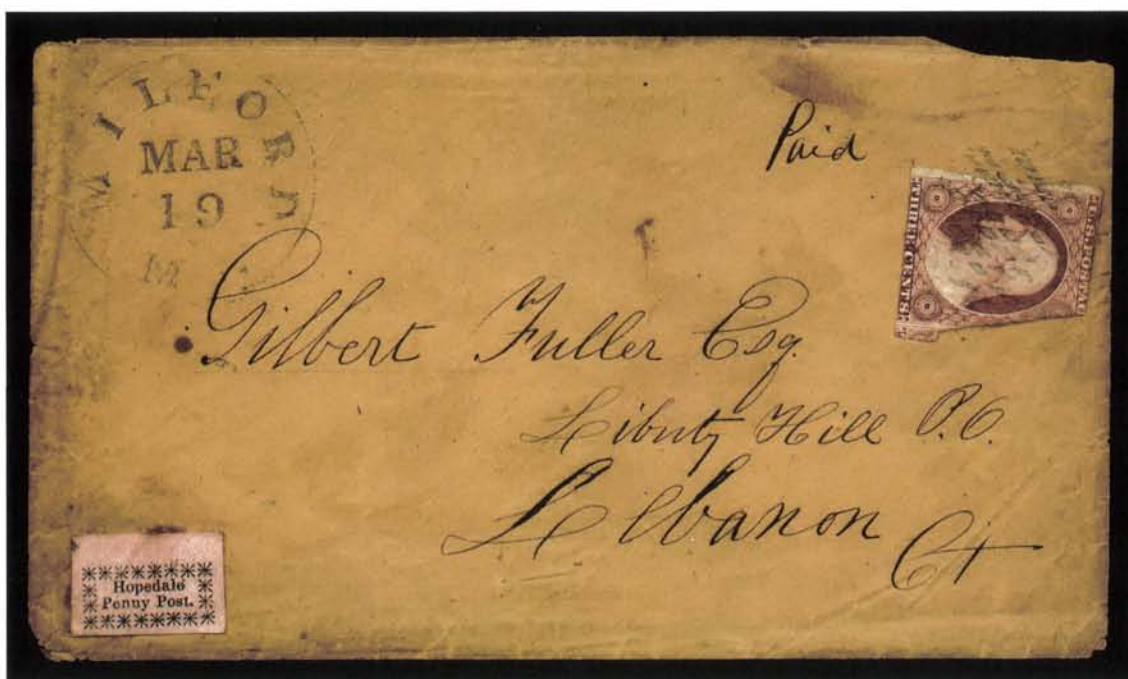 MILFORD
MAR
19
M
Paid
U.S. POSTAG
THREE CENTS
Gilbert Fuller Esq.
Liberty Hill P.O.
Lebanon
Ct
Hopedale
Penny Post.